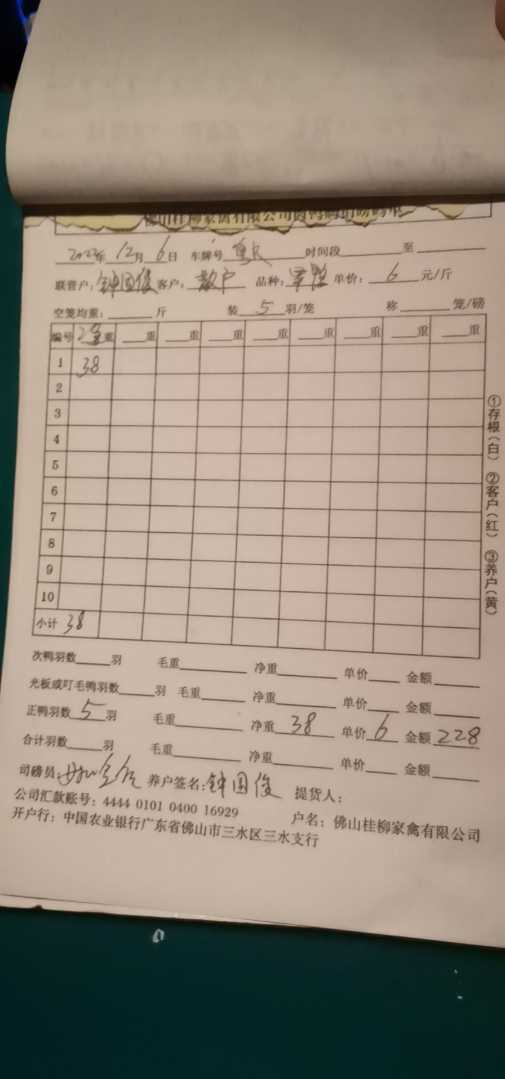 佛山桂柳家禽有限公司
2022年 12月 6日 车牌号 时间段 至
联营户: 钟国俊 客户: 散户 品种: 单价: 6 元/斤
空笼均重: 斤 装 5 羽/笼 称 笼/磅
编号 重 重 重 重 重 重 重 重
1 38
2
3
4
5
6
7
8
9
10
小计 38
①存根(白) ②客户(红) ③养户(黄)
次鸭羽数 羽 毛重 净重 单价 金额
光板或叮毛鸭羽数 羽 毛重 净重 单价 金额
正鸭羽数 5 羽 毛重 净重 38 单价 6 金额 228
合计羽数 羽 毛重 净重 单价 金额
司磅员: 养户签名: 钟国俊 提货人:
公司汇款账号: 4444 0101 0400 16929 户名: 佛山桂柳家禽有限公司
开户行: 中国农业银行广东省佛山市三水区三水支行